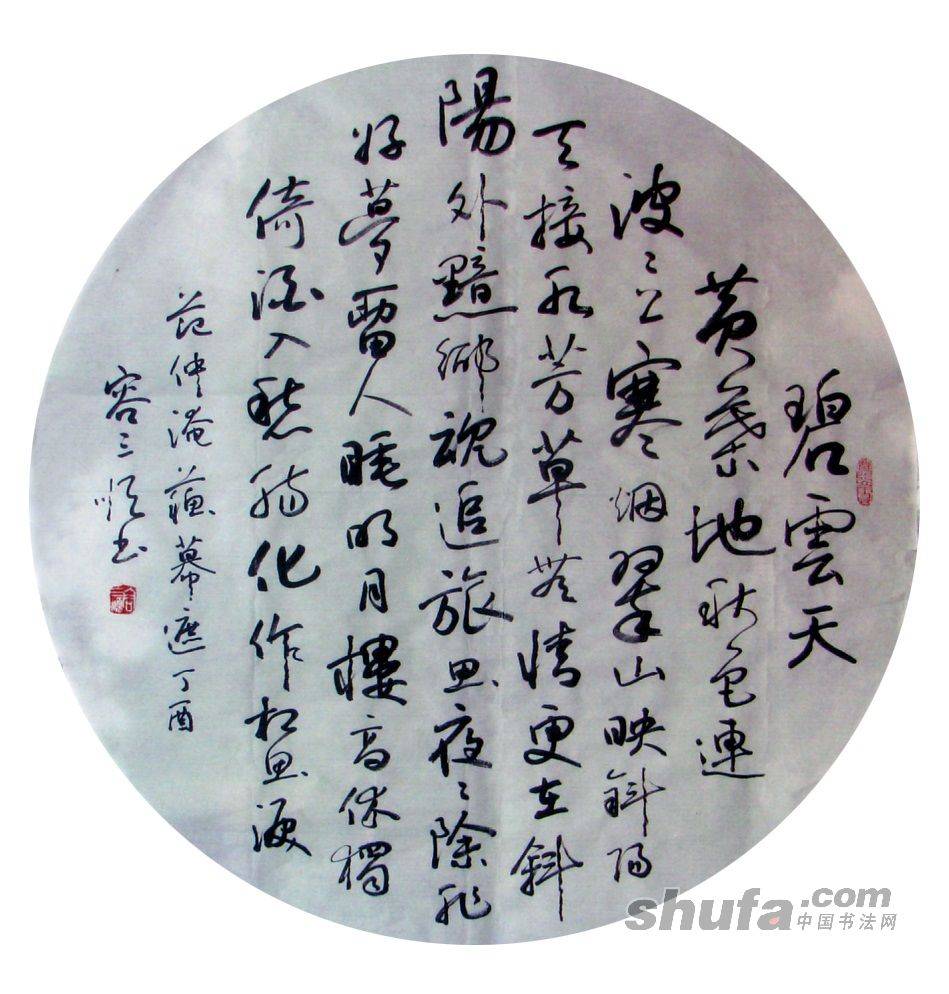 碧雲天
黄葉地秋色連
波〻上寒烟翠山映斜阳
天接水芳草無情更在斜
陽外黯鄉魂追旅思夜〻除非
好夢留人睡明月樓高休獨
倚酒入愁腸化作相思淚
范仲淹蘇幕遮丁酉
容三順书
shufa.com
中国书法网